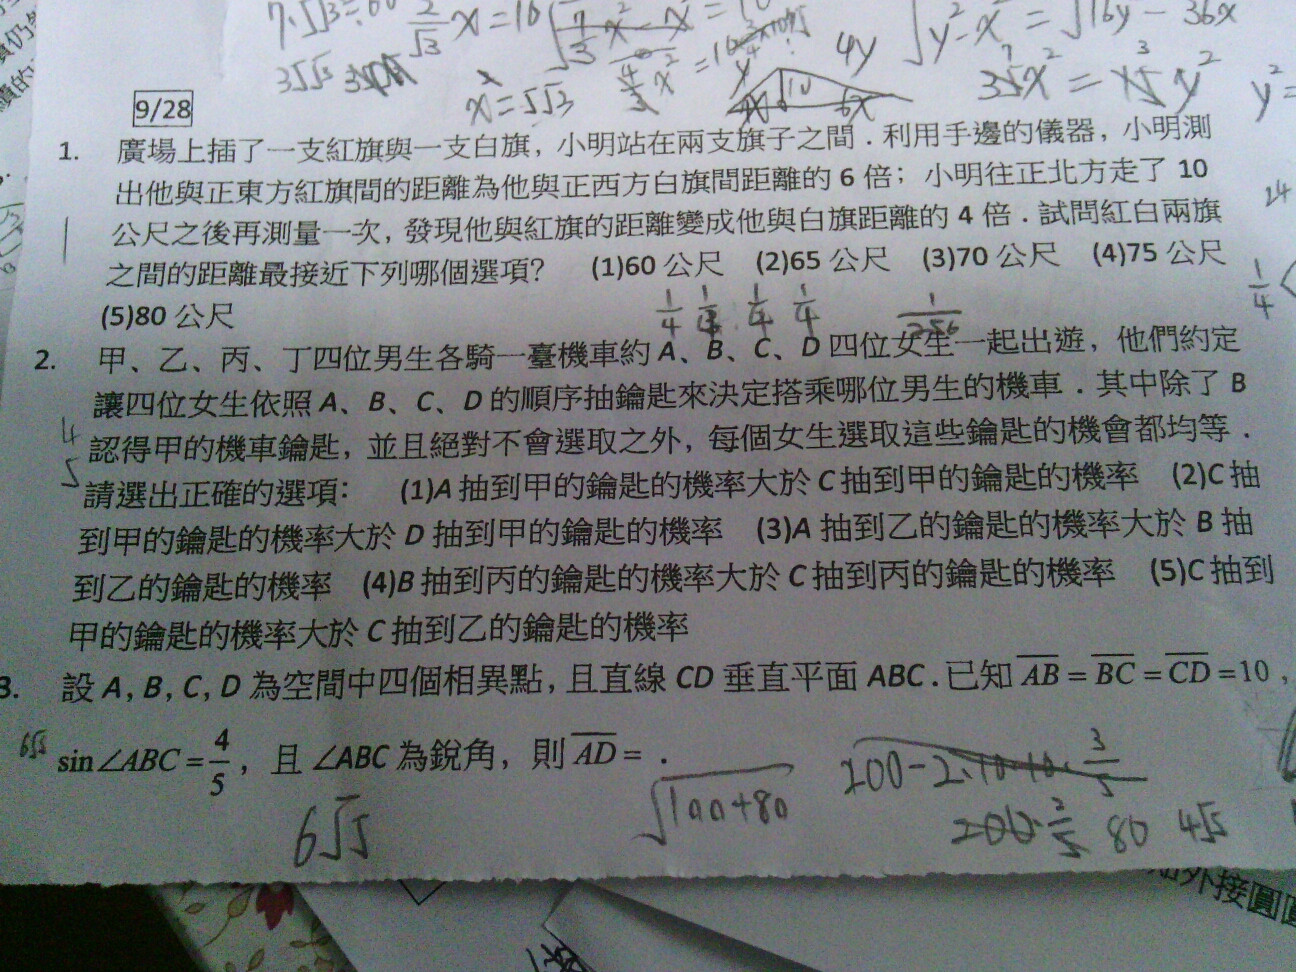 9/28
1. 廣場上插了一支紅旗與一支白旗，小明站在兩支旗子之間．利用手邊的儀器，小明測
出他與正東方紅旗間的距離為他與正西方白旗間距離的 6 倍；小明往正北方走了 10
公尺之後再測量一次，發現他與紅旗的距離變成他與白旗距離的 4 倍．試問紅白兩旗
之間的距離最接近下列哪個選項？ (1)60 公尺 (2)65 公尺 (3)70 公尺 (4)75 公尺
(5)80 公尺
1/4 1/4 1/4 1/4 1/256
2. 甲、乙、丙、丁四位男生各騎一臺機車約 A、B、C、D 四位女生一起出遊，他們約定
讓四位女生依照 A、B、C、D 的順序抽鑰匙來決定搭乘哪位男生的機車．其中除了 B
認得甲的機車鑰匙，並且絕對不會選取之外，每個女生選取這些鑰匙的機會都均等．
請選出正確的選項： (1)A 抽到甲的鑰匙的機率大於 C 抽到甲的鑰匙的機率 (2)C 抽
到甲的鑰匙的機率大於 D 抽到甲的鑰匙的機率 (3)A 抽到乙的鑰匙的機率大於 B 抽
到乙的鑰匙的機率 (4)B 抽到丙的鑰匙的機率大於 C 抽到丙的鑰匙的機率 (5)C 抽到
甲的鑰匙的機率大於 C 抽到乙的鑰匙的機率
3. 設 A, B, C, D 為空間中四個相異點，且直線 CD 垂直平面 ABC．已知 AB = BC = CD =10，
6√5 sin∠ABC = 4/5，且 ∠ABC 為銳角，則 AD = ．
6√5 √100+80 200-2·10·10·3/5
200·2/5 80 4√5
外接圓